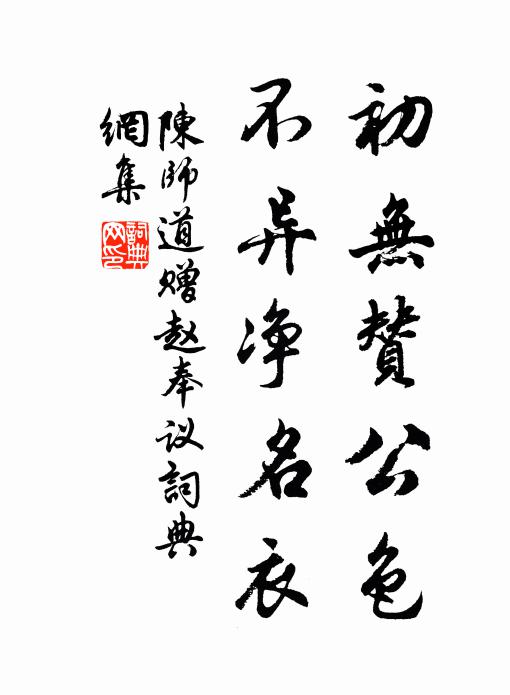 初無贊公色
不异净名衣
陳師道赠赵奉议詞典
網集
詞典
网印